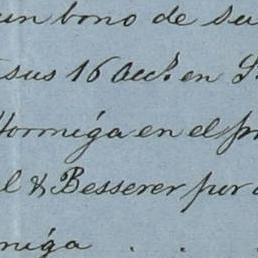 un bono de su
sus 16 Accs. en
Hormiga en el
l & Besserer por
miga . . .